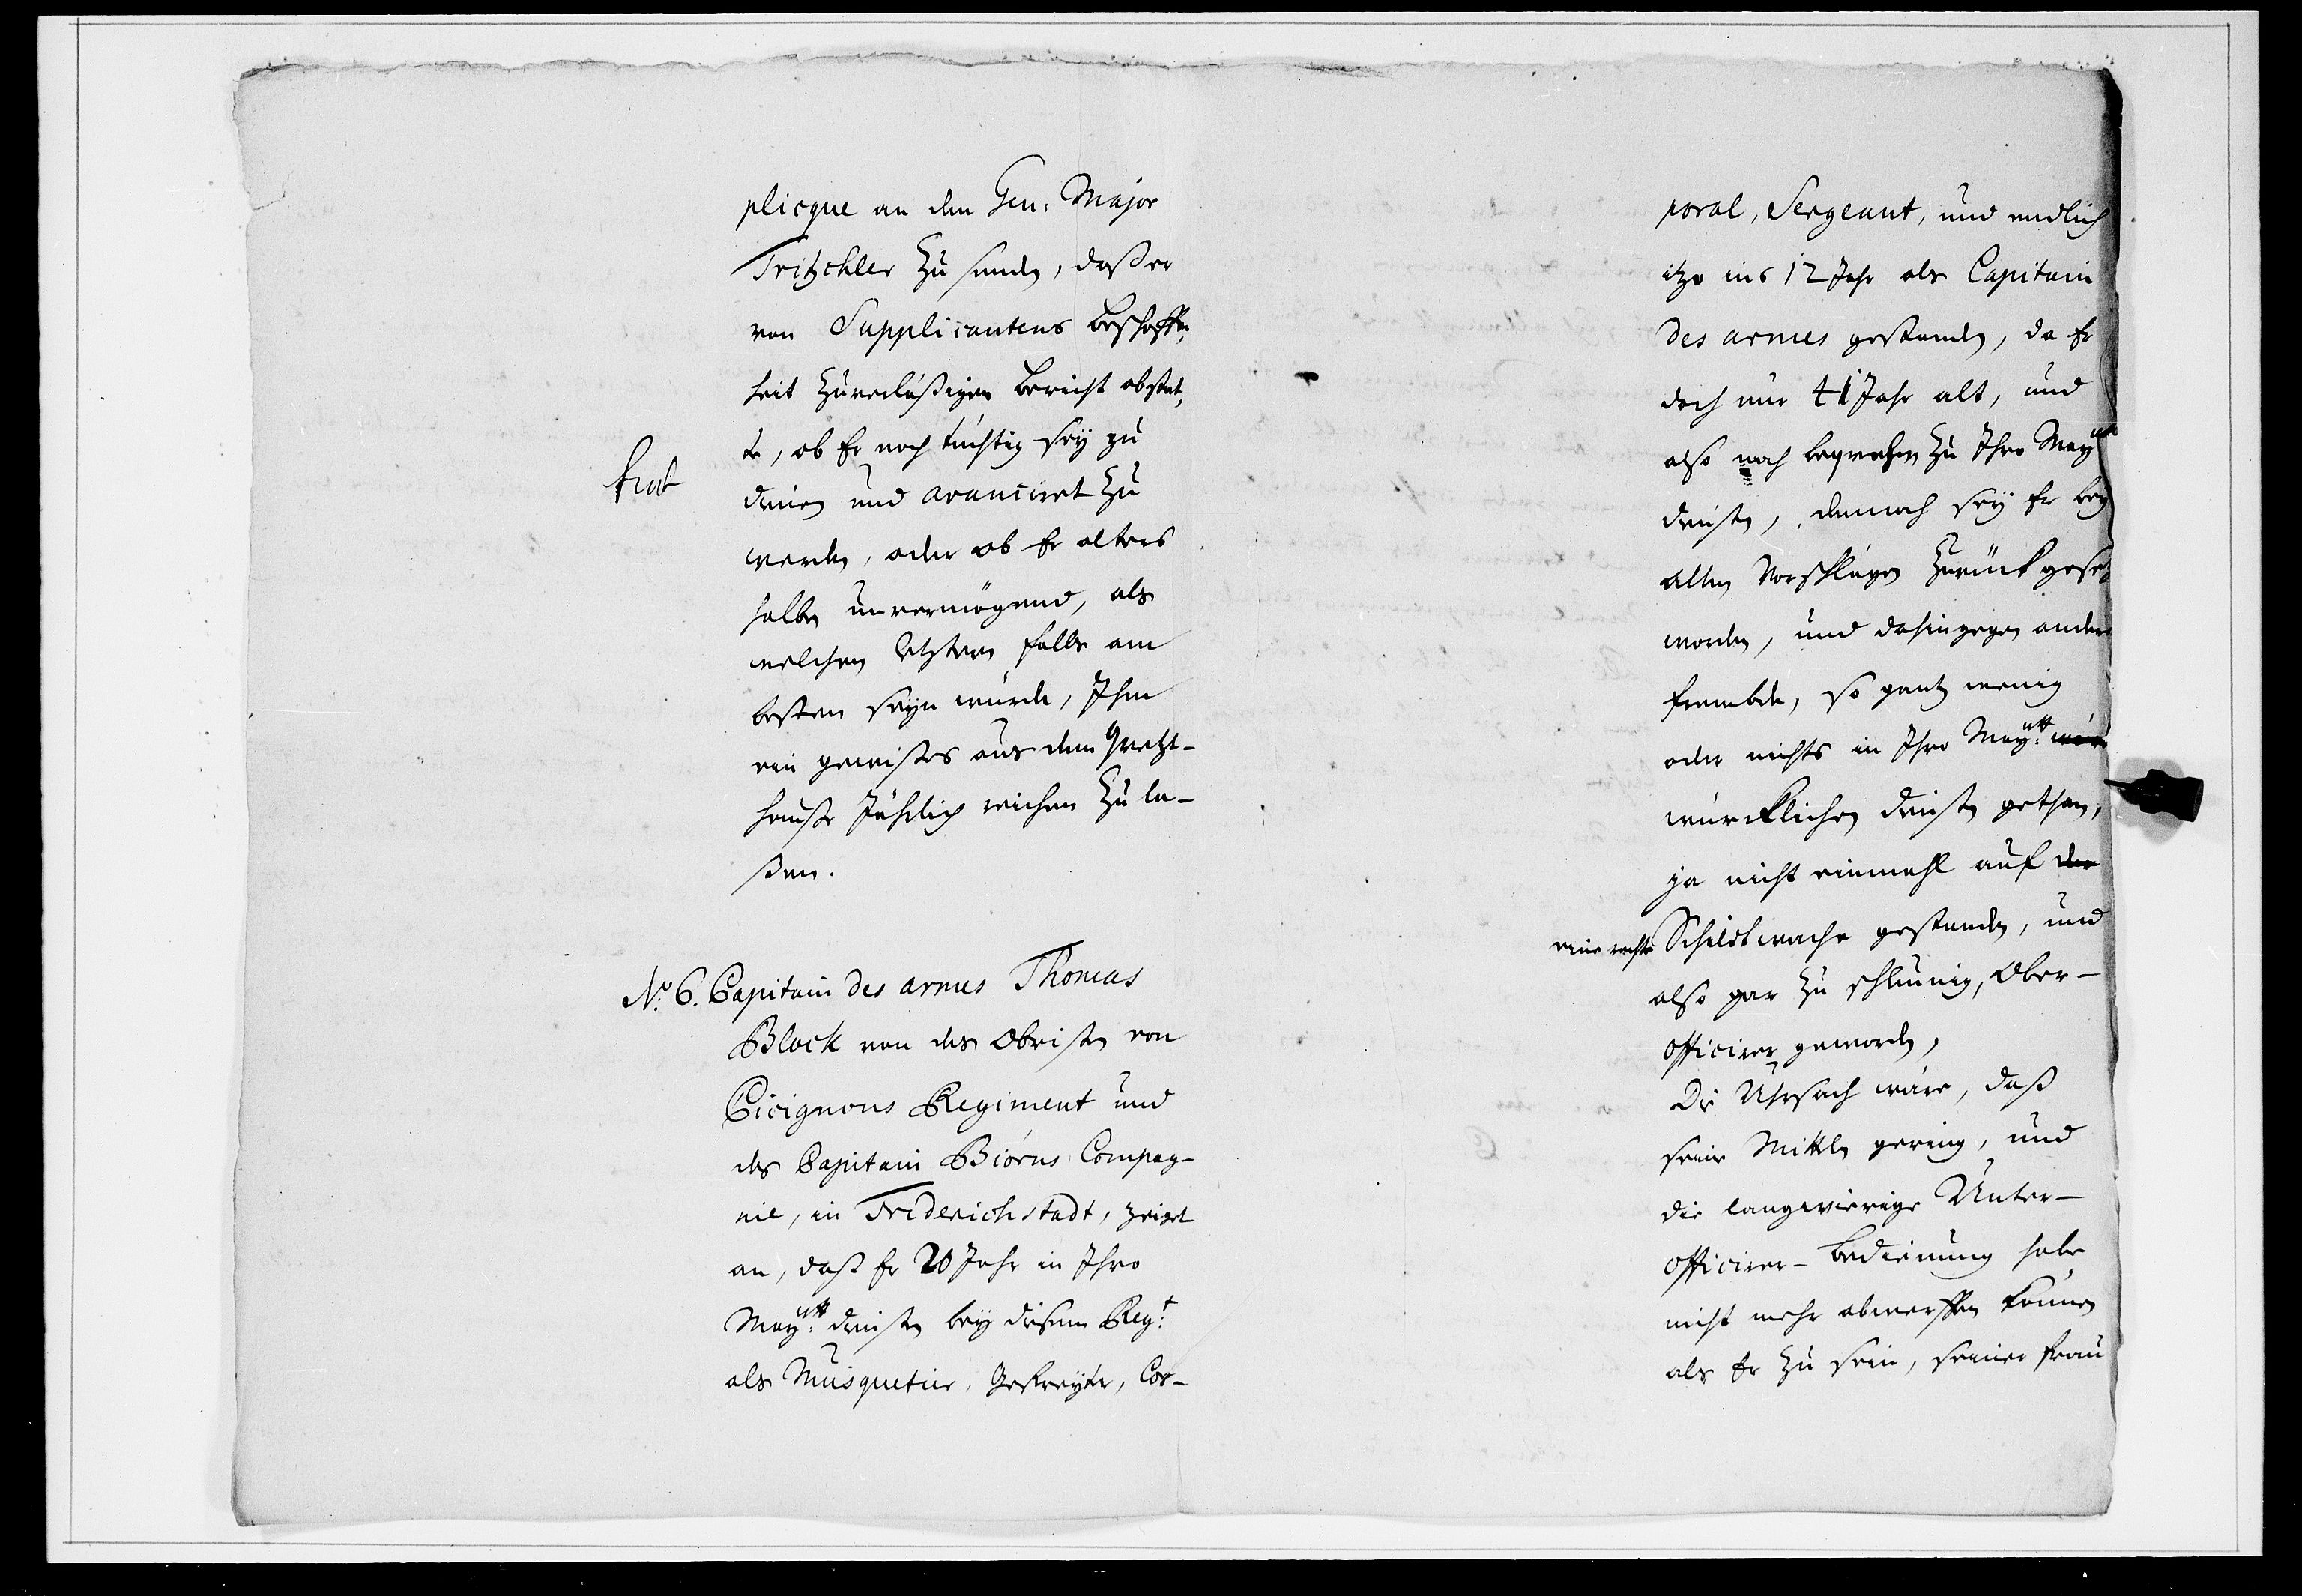 plicque an den Gen: Major
Tritzchler zu senden, daß er
von Supplicantens Beschaffen,
heit zuverläßigen Bericht abstat,
te, ob Er noch tüchtig seÿ zu
dienen und avanciret zu
werden, oder ob Er alters
halben unvermögend, als
welchen letztern falls am
besten seÿn würde, Ihm
ein gewißes aus dem Quæst-
hause Jährlich reichen zu la-
ßen.
fiat
No. 6. Capitain des armes Thomas
Block von des Obristen von
Cicignons Regiment und
des Capitain Biörns Compag-
nie, in Friderichstadt, zeiget
an, daß Er 20 Jahr in Ihro
Maÿtt: diensten beÿ diesem Regt:
als Musquetier, Gefreÿter, Cor-
poral, Sergeant, und endlich
itzo ins 12 Jahr als Capitain
des armes gestanden, da Er
doch nur 41 Jahr alt, und
also noch beqvehm zu Ihro Maÿtt
diensten, dennoch seÿ Er beÿ
allen Vorschlägen zurück gesetz
worden, und dahingegen andere
frembde, so gantz wenig
oder nichts in Ihro Maÿtt:
würcklichen diensten gethan,
ja nicht einmahl auf der
eine rechte Schildtwache gestanden, und
also gar zu schleunig, Ober-
officirer geworden,
Die Uhrsach wäre, daß
seine Mittel gering, und
die langwierige Unter-
officirer-bedienung habe
nicht mehr abwerffen können
als Er zu sein, seiner frau